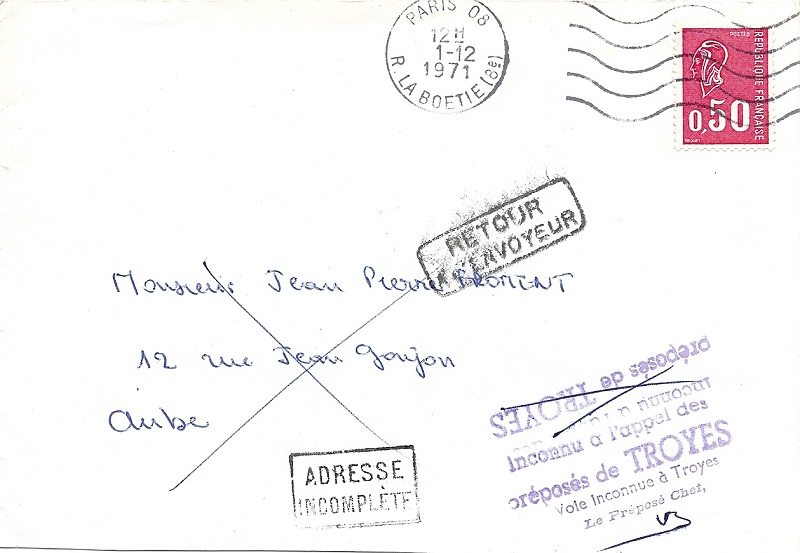 PARIS 08
12H
1-12
1971
R. LA BOETIE (8e)
POSTES
REPUBLIQUE FRANÇAISE
0,50
RETOUR
A L'ENVOYEUR
Monsieur Jean Pierre FROMENT
12 rue Jean Goujon
Aube
ADRESSE
INCOMPLÈTE
préposés de TROYES
Inconnu à l'appel des
Inconnu à l'appel des
préposés de TROYES
Voie Inconnue à Troyes
Le Préposé Chef,